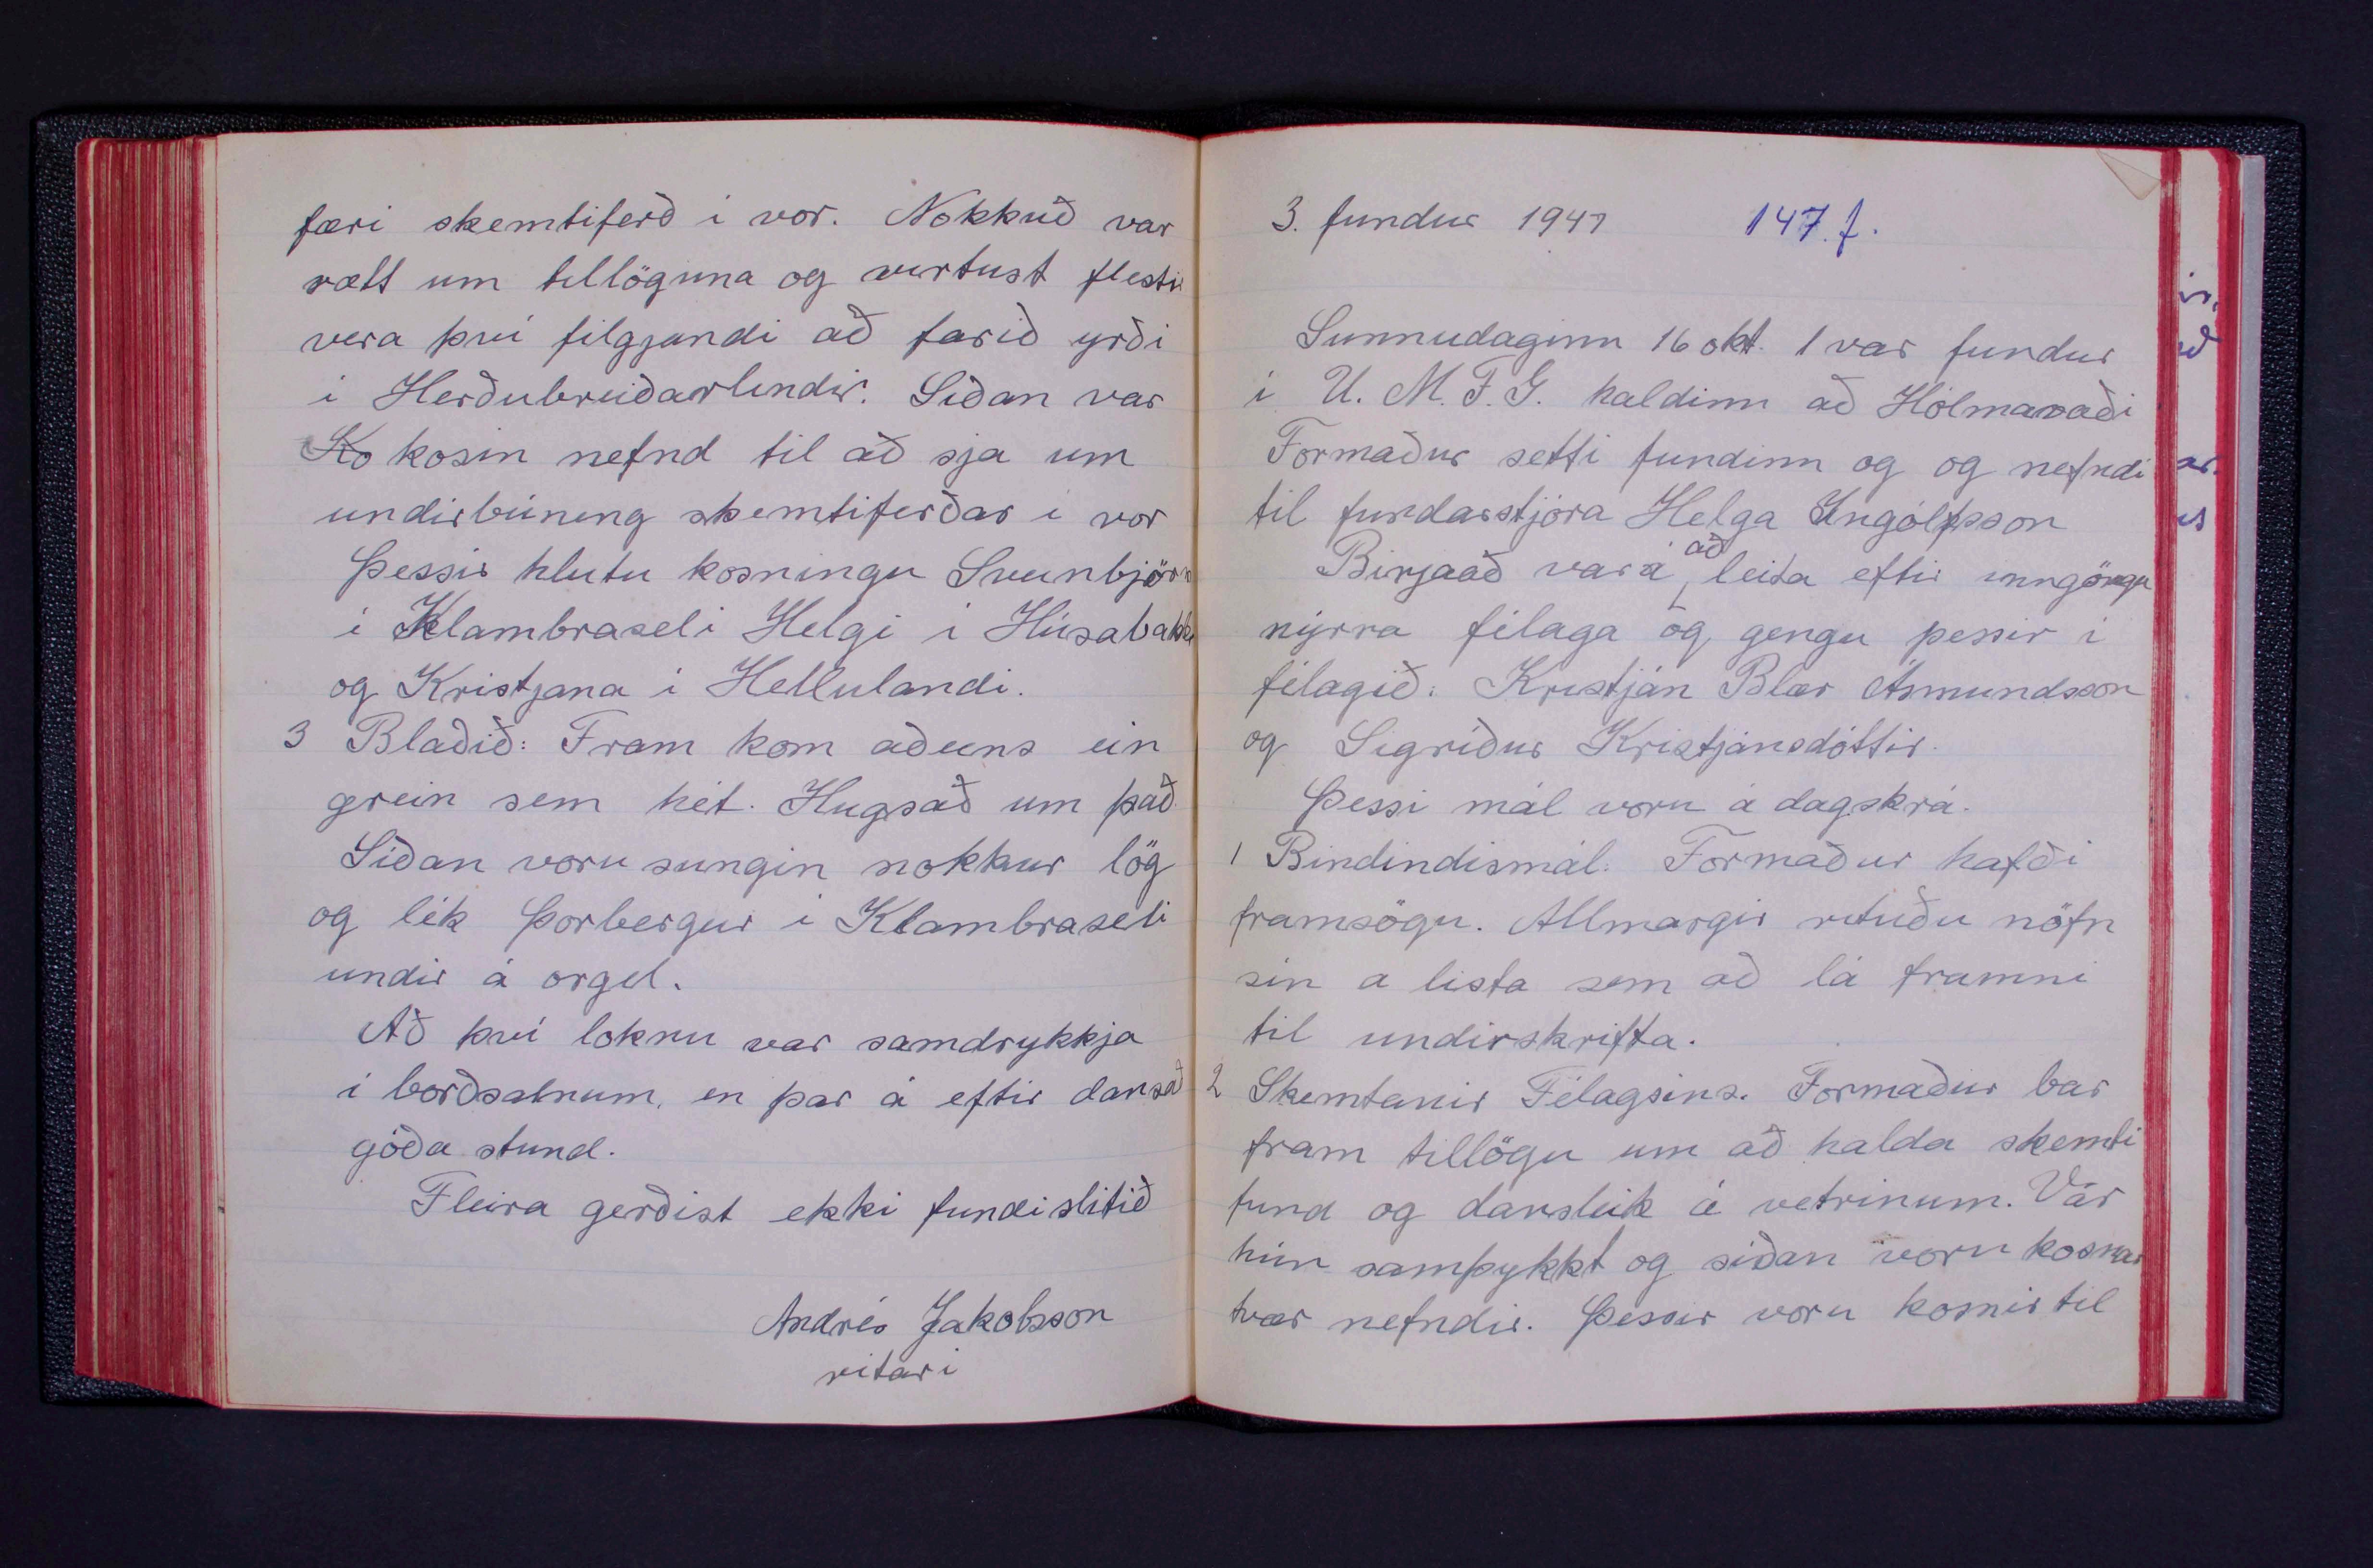 færi skemtiferð í vor. Nokkuð var
rætt um tillöguna og virtust flestir
vera því filgjandi að farið yrði
í Herðubreiðarlindir. Síðan var
Ko kosin nefnd til að sja um
undirbúning skemtiferðar í vor
Þessir hlutu kosningu Sveinbjörn
í Klambraseli Helgi í Húsabakka
og Kristjana í Hellulandi.
3 Blaðið: Fram kom aðeins ein
grein sem hét. Hugsað um það.
Síðan voru sungin nokkur lög
og lék Þorbergur í Klambraseli
undir á orgel.
Að því loknu var samdrykkja
í borðsalnum, en þar á eftir dansað
góða stund.
Fleira gerðist ekki fundi slitið
Andrés Jakobsson
ritari
3. fundur 1941 147. f.
Sunnudaginn 16 okt. 1 var fundur
í U. M. F. G. haldinn að Hólmavaði
Formaður setti fundinn og og nefndi
til fundarstjóra Helga Ingólfsson
Birjaað var á að leita eftir inngöngu
nýrra félaga og gengu þessir í
félagið: Kristján Blær Ásmundsson
og Sigríður Kristjánsdóttir.
Þessi mál voru á dagskrá.
1 Bindindismál: Formaður hafði
framsögu. Allmargir rituðu nöfn
sín a lista sem að lá frammi
til undirskrifta.
2 Skemtanir Félagsins. Formaður bar
fram tillögu um að halda skemti
fund og dansleik á vetrinum. Var
hún samþykkt og síðan voru kosnar
tvær nefndir. Þessir voru kosnir til